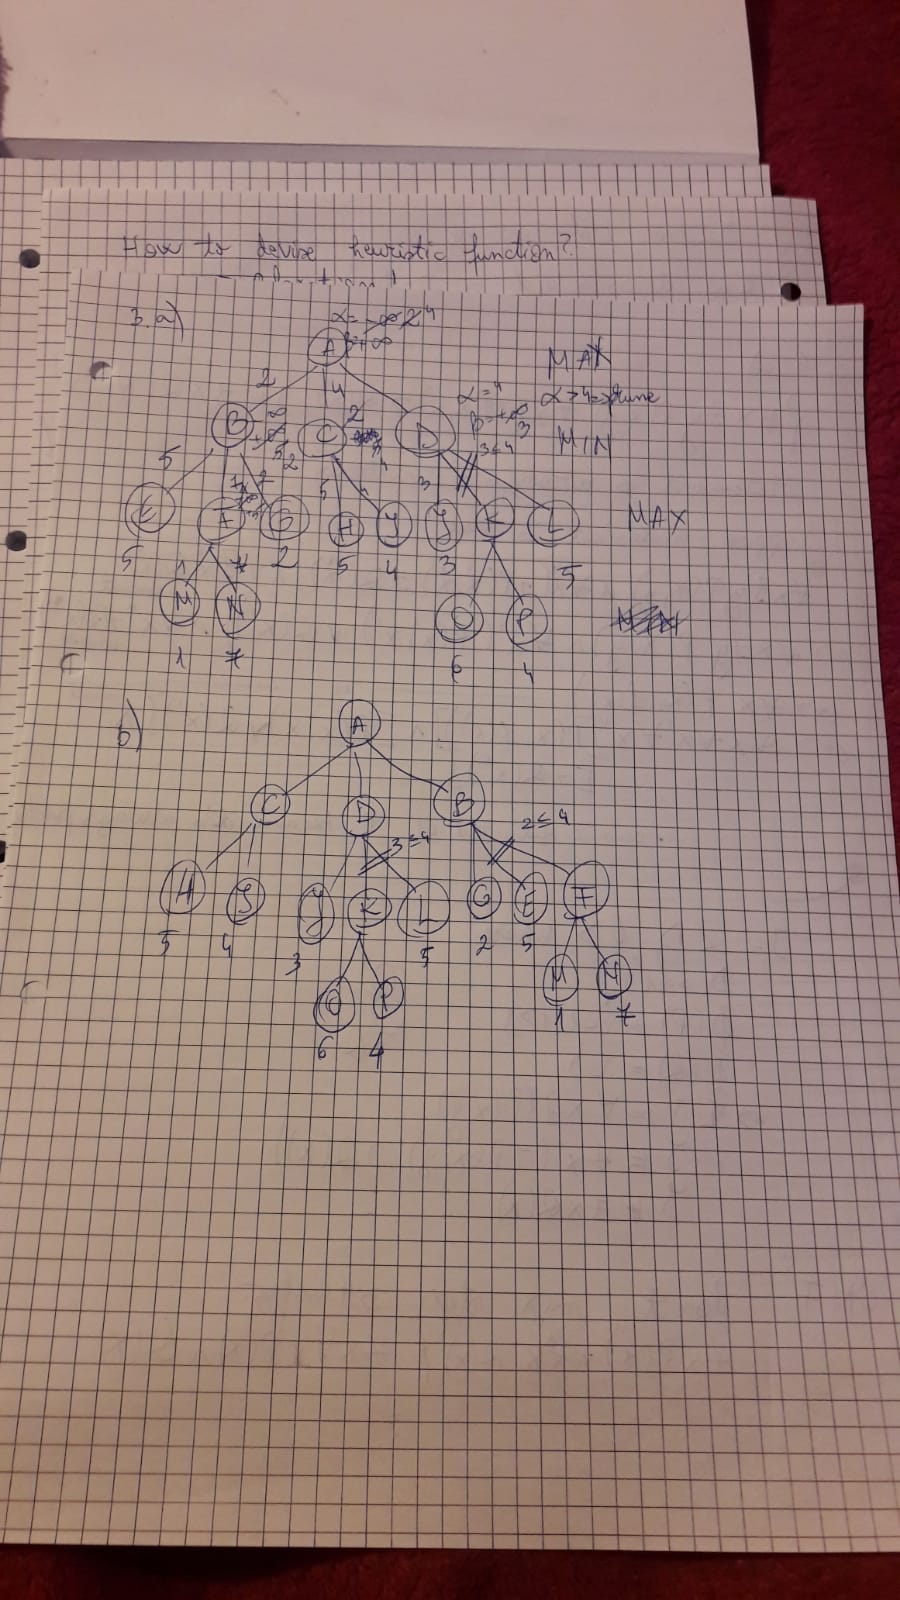 How to devise heuristic function?
3. a)
α = -∞ 2 4
A β +∞
MAX
2 4
α = 4
α > 4 => prune
β = +∞
3
B C 2 D
MIN
5 2 3 ≤ 4
5 3
E F G H J J K L MAX
5 2 5 4 3 5
1 7
M N O P
1 7 6 4
b)
A
C D B
3 ≤ 4 2 ≤ 4
H J J K L G E F
5 4 3 5 2 5
O P M N
6 4 1 7